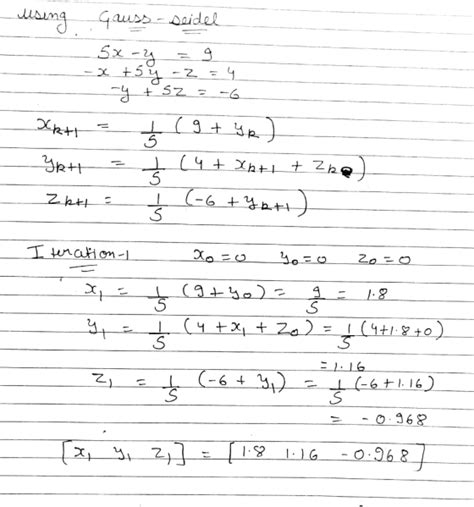 using Gauss-seidel
5x - y = 9
-x + 5y - z = 4
-y + 5z = -6
x_{k+1} = 1/5 (9 + y_k)
y_{k+1} = 1/5 (4 + x_{k+1} + z_k)
z_{k+1} = 1/5 (-6 + y_{k+1})
Iteration-1 x_0=0 y_0=0 z_0=0
x_1 = 1/5 (9+y_0) = 9/5 = 1.8
y_1 = 1/5 (4 + x_1 + z_0) = 1/5 (4+1.8+0)
= 1.16
z_1 = 1/5 (-6 + y_1) = 1/5 (-6+1.16)
= -0.968
[x_1 y_1 z_1] = [1.8 1.16 -0.968]